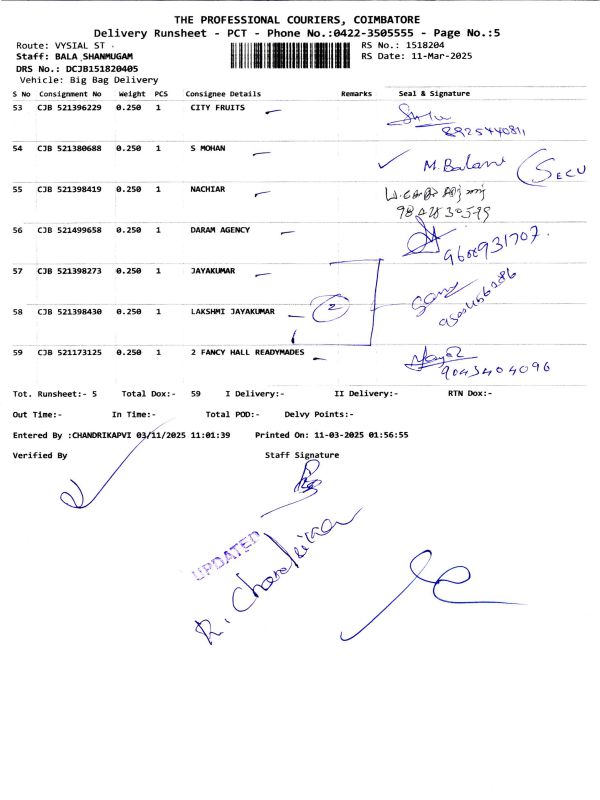 THE PROFESSIONAL COURIERS, COIMBATORE
Delivery Runsheet - PCT - Phone No.:0422-3505555 - Page No.:5
Route: VYSIAL ST RS No.: 1518204
Staff: BALA SHANMUGAM RS Date: 11-Mar-2025
DRS No.: DCJB151820405
Vehicle: Big Bag Delivery
S No Consignment No Weight PCS Consignee Details Remarks Seal & Signature
53 CJB 521396229 0.250 1 CITY FRUITS
8925440811
54 CJB 521380688 0.250 1 S MOHAN M. Balani (SECU
55 CJB 521398419 0.250 1 NACHIAR
56 CJB 521499658 0.250 1 DARAM AGENCY 9600931707.
57 CJB 521398273 0.250 1 JAYAKUMAR
58 CJB 521398430 0.250 1 LAKSHMI JAYAKUMAR 2
59 CJB 521173125 0.250 1 2 FANCY HALL READYMADES
9043404096
Tot. Runsheet:- 5 Total Dox:- 59 I Delivery:- II Delivery:- RTN Dox:-
Out Time:- In Time:- Total POD:- Delvy Points:-
Entered By :CHANDRIKAPVI 03/11/2025 11:01:39 Printed On: 11-03-2025 01:56:55
Verified By Staff Signature
UPDATED
R. Chandrika